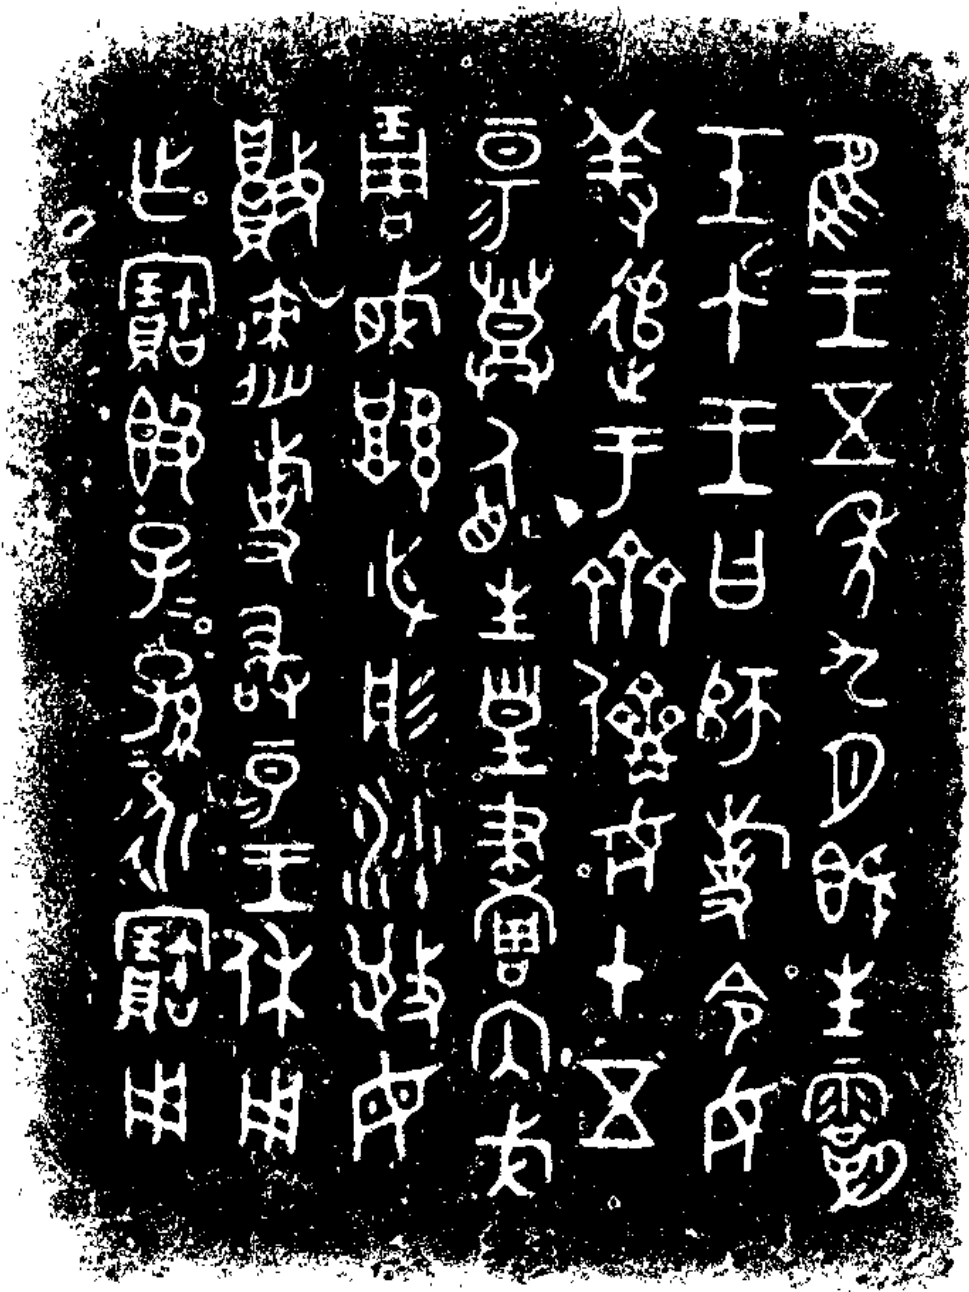 隹王五年九月既生霸
壬午王曰師旋令女
羞追于齊儕女毌五
昜登盾生皇畫內戈
琱㦸厚必彤沙敬毋
敗速旋敢昜王休用
乍寶簋子=孫=永寶用